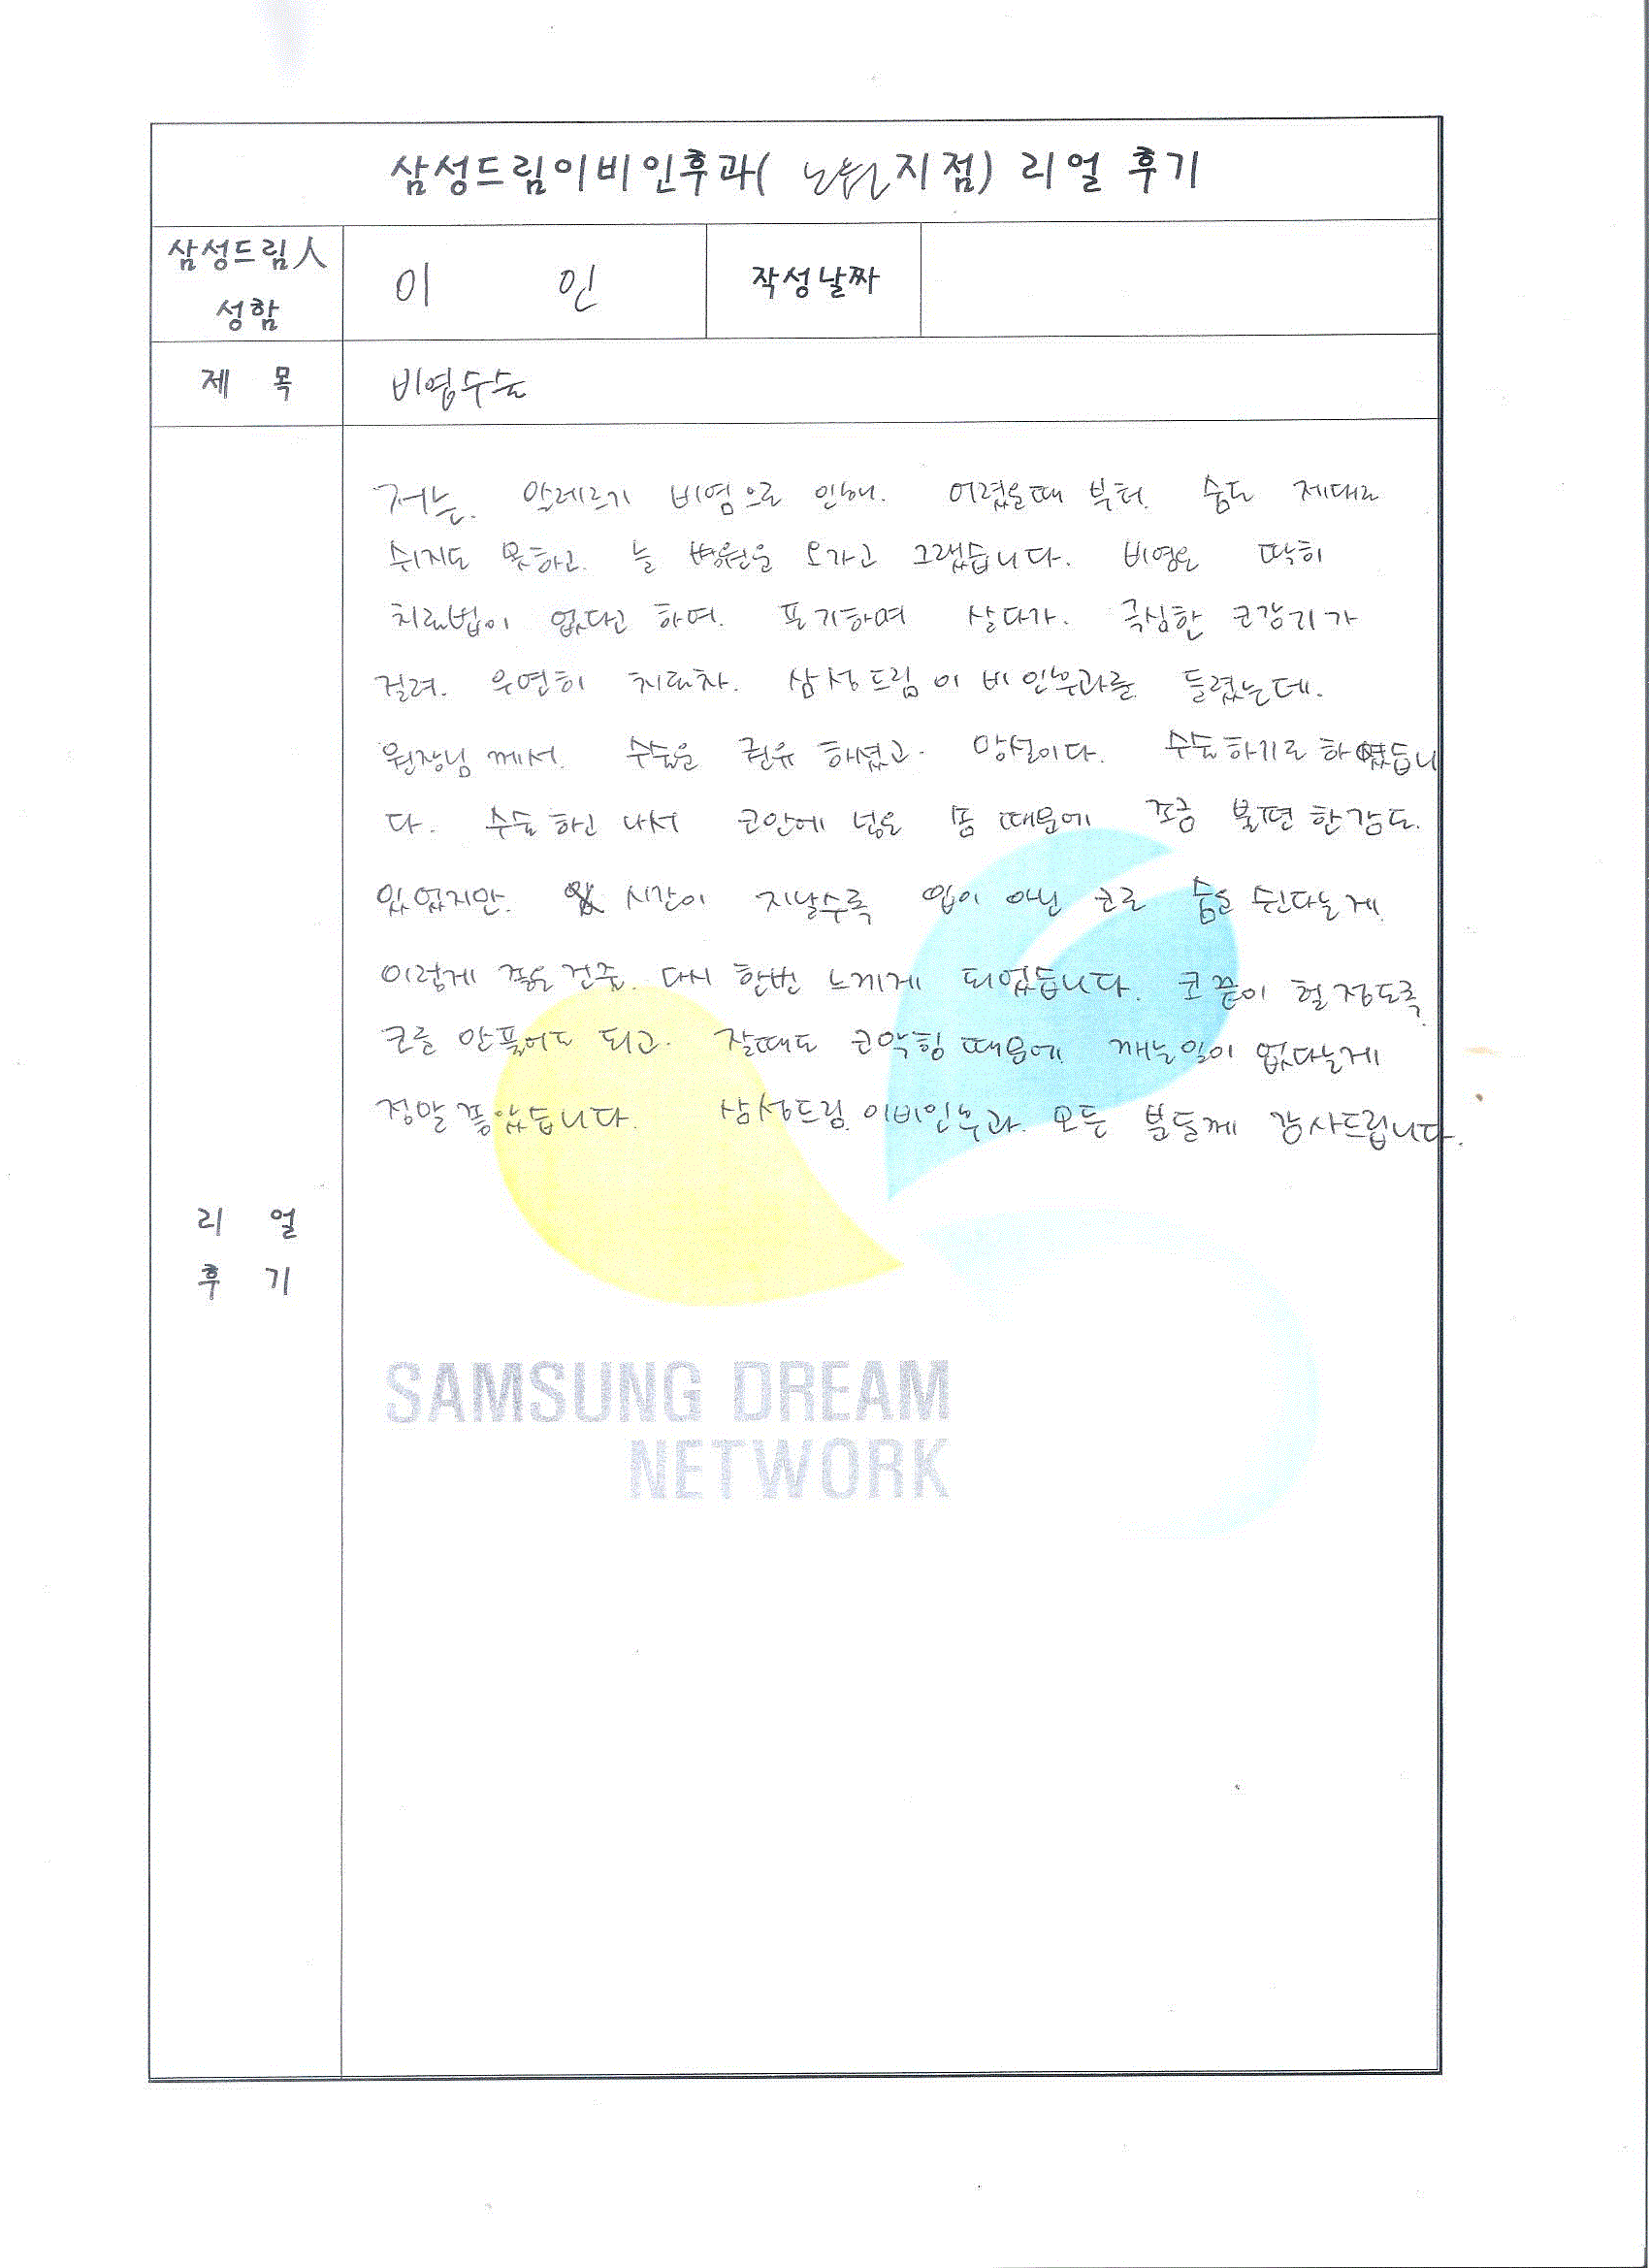 삼성드림이비인후과( 노원지점) 리얼 후기
삼성드림人
성함
이 인
작성날짜
제 목
비염수술
저는. 알레르기 비염으로 인해. 어렸을때 부터. 숨도 제대로
쉬지도 못하고. 늘 병원을 오가고 그랬습니다. 비염은 딱히
치료법이 없다고 하여. 포기하며 살다가. 극심한 코감기가
걸려. 우연히 치료차. 삼성드림이비인후과를 들렸는데.
원장님께서. 수술을 권유 하셨고. 망설이다. 수술하기로 하였습니
다. 수술 하고 나서 코안에 넣은 솜 때문에 조금 불편 한감도.
있었지만. 시간이 지날수록 입이 아닌 코로 숨을 쉰다는게.
이렇게 좋은건줄. 다시 한번 느끼게 되었습니다. 코끝이 헐정도록
코를 안풀어도 되고. 잘때도 코막힘 때문에. 깨는일이 없다는게
정말 좋았습니다. 삼성드림 이비인후과. 모든 분들께 감사드립니다.
리 얼
후 기
SAMSUNG DREAM
NETWORK